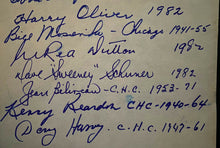 Harry Oliver 1982
Bill Mosienko - Chicago 1941-55
Dutton 1982
Dave "Sweeney" Schriner 1982
Jean Béliveau - C.H.C. 1953-71
Kenny Reardon CHC-1940-64
Doug Harvey C.H.C. 1947-61